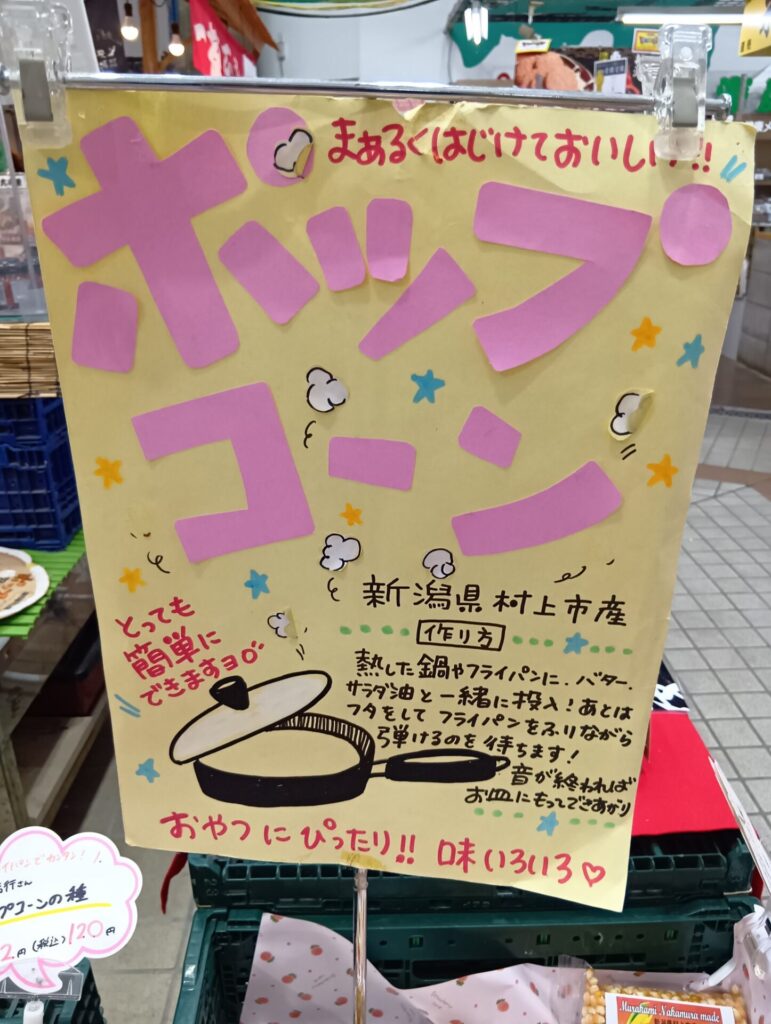 まあるくはじけておいしい!!
ポップ
コーン
新潟県村上市産
作り方
とっても
簡単に
できますヨ
熱した鍋やフライパンに、バター、
サラダ油と一緒に投入！あとは
フタをして フライパンをふりながら
弾けるのを待ちます！
音が終われば
お皿にもってできあがり
おやつにぴったり!! 味いろいろ
パンでカンタン！
行さん
プコーンの種
2.円(税込)120円
Murakami Nakamura made